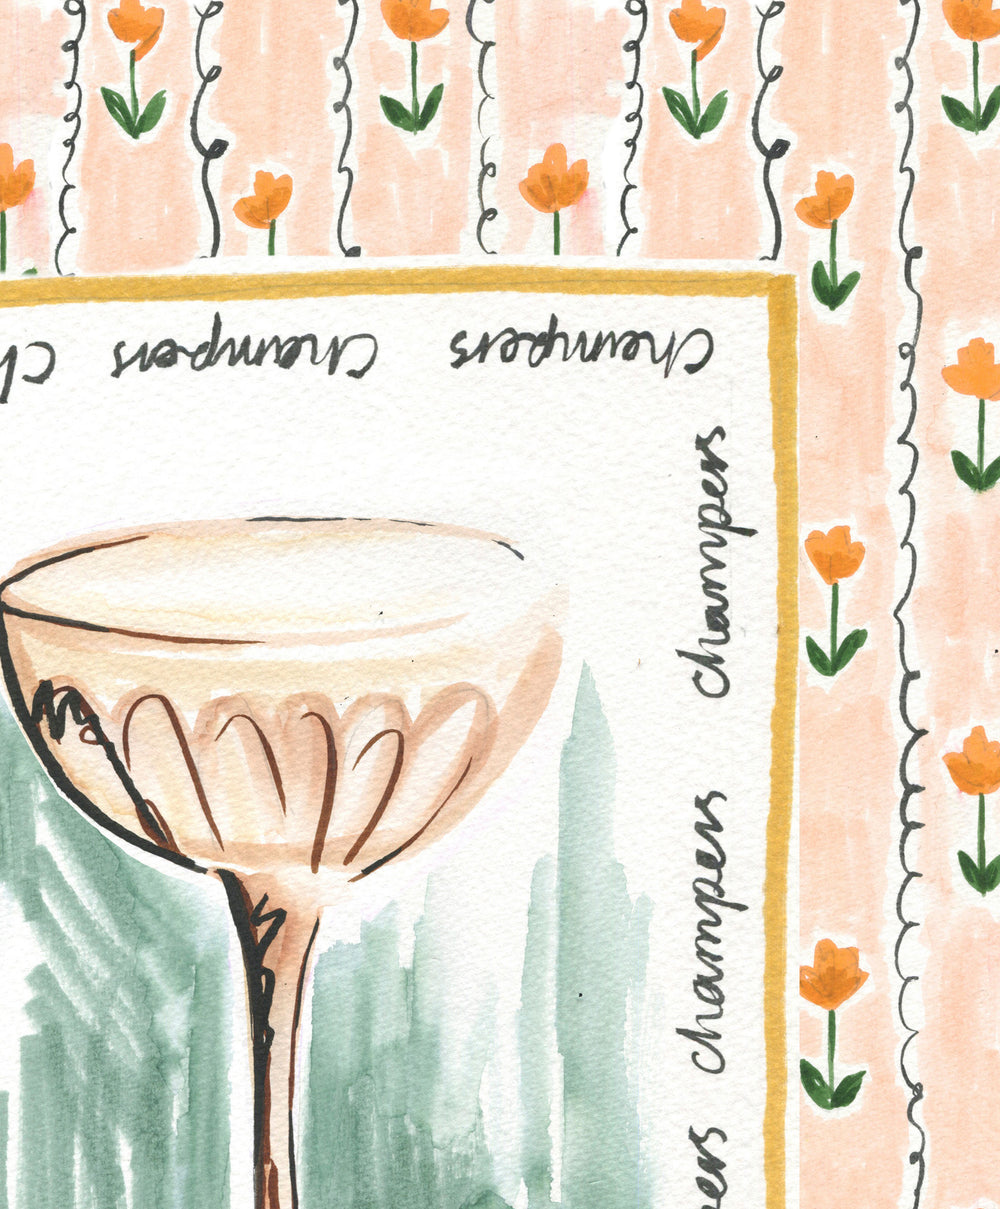 champers champers ch
champers
champers
pers